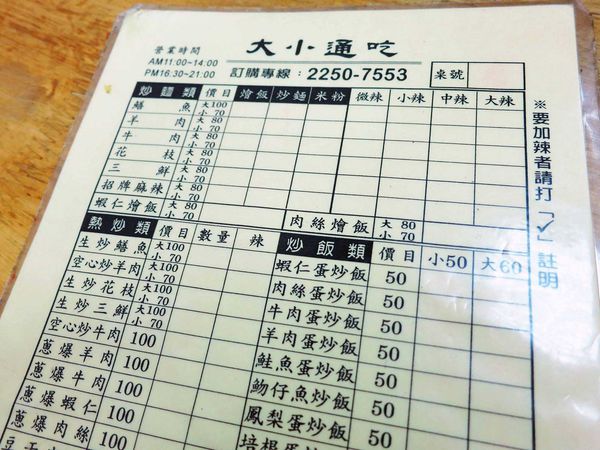 大小通吃
營業時間
AM11:00~14:00
PM16:30~21:00
訂購專線:2250-7553
桌號
炒麵類 價目 燴飯 炒麵 米粉 微辣 小辣 中辣 大辣
鱔魚 大100 小 70
羊肉 大 80 小 70
牛肉 大 80 小 70
花枝 大 80 小 70
三鮮 大 80 小 70
招牌麻辣 大 80 小 70
蝦仁燴飯 大 80 小 70
肉絲燴飯 大 80 小 70
※要加辣者請打「✓」註明
熱炒類 價目 數量 辣
生炒鱔魚 大100 小 70
空心炒羊肉 大100 小 70
生炒花枝 大100 小 70
生炒三鮮 大100 小 70
空心炒牛肉 100
蔥爆羊肉 100
蔥爆牛肉 100
蔥爆蝦仁 100
蔥爆肉絲 100
炒飯類 價目 小50 大60
蝦仁蛋炒飯 50
肉絲蛋炒飯 50
牛肉蛋炒飯 50
羊肉蛋炒飯 50
鮭魚蛋炒飯 50
吻仔魚炒飯 50
鳳梨蛋炒飯 50
培根蛋炒飯